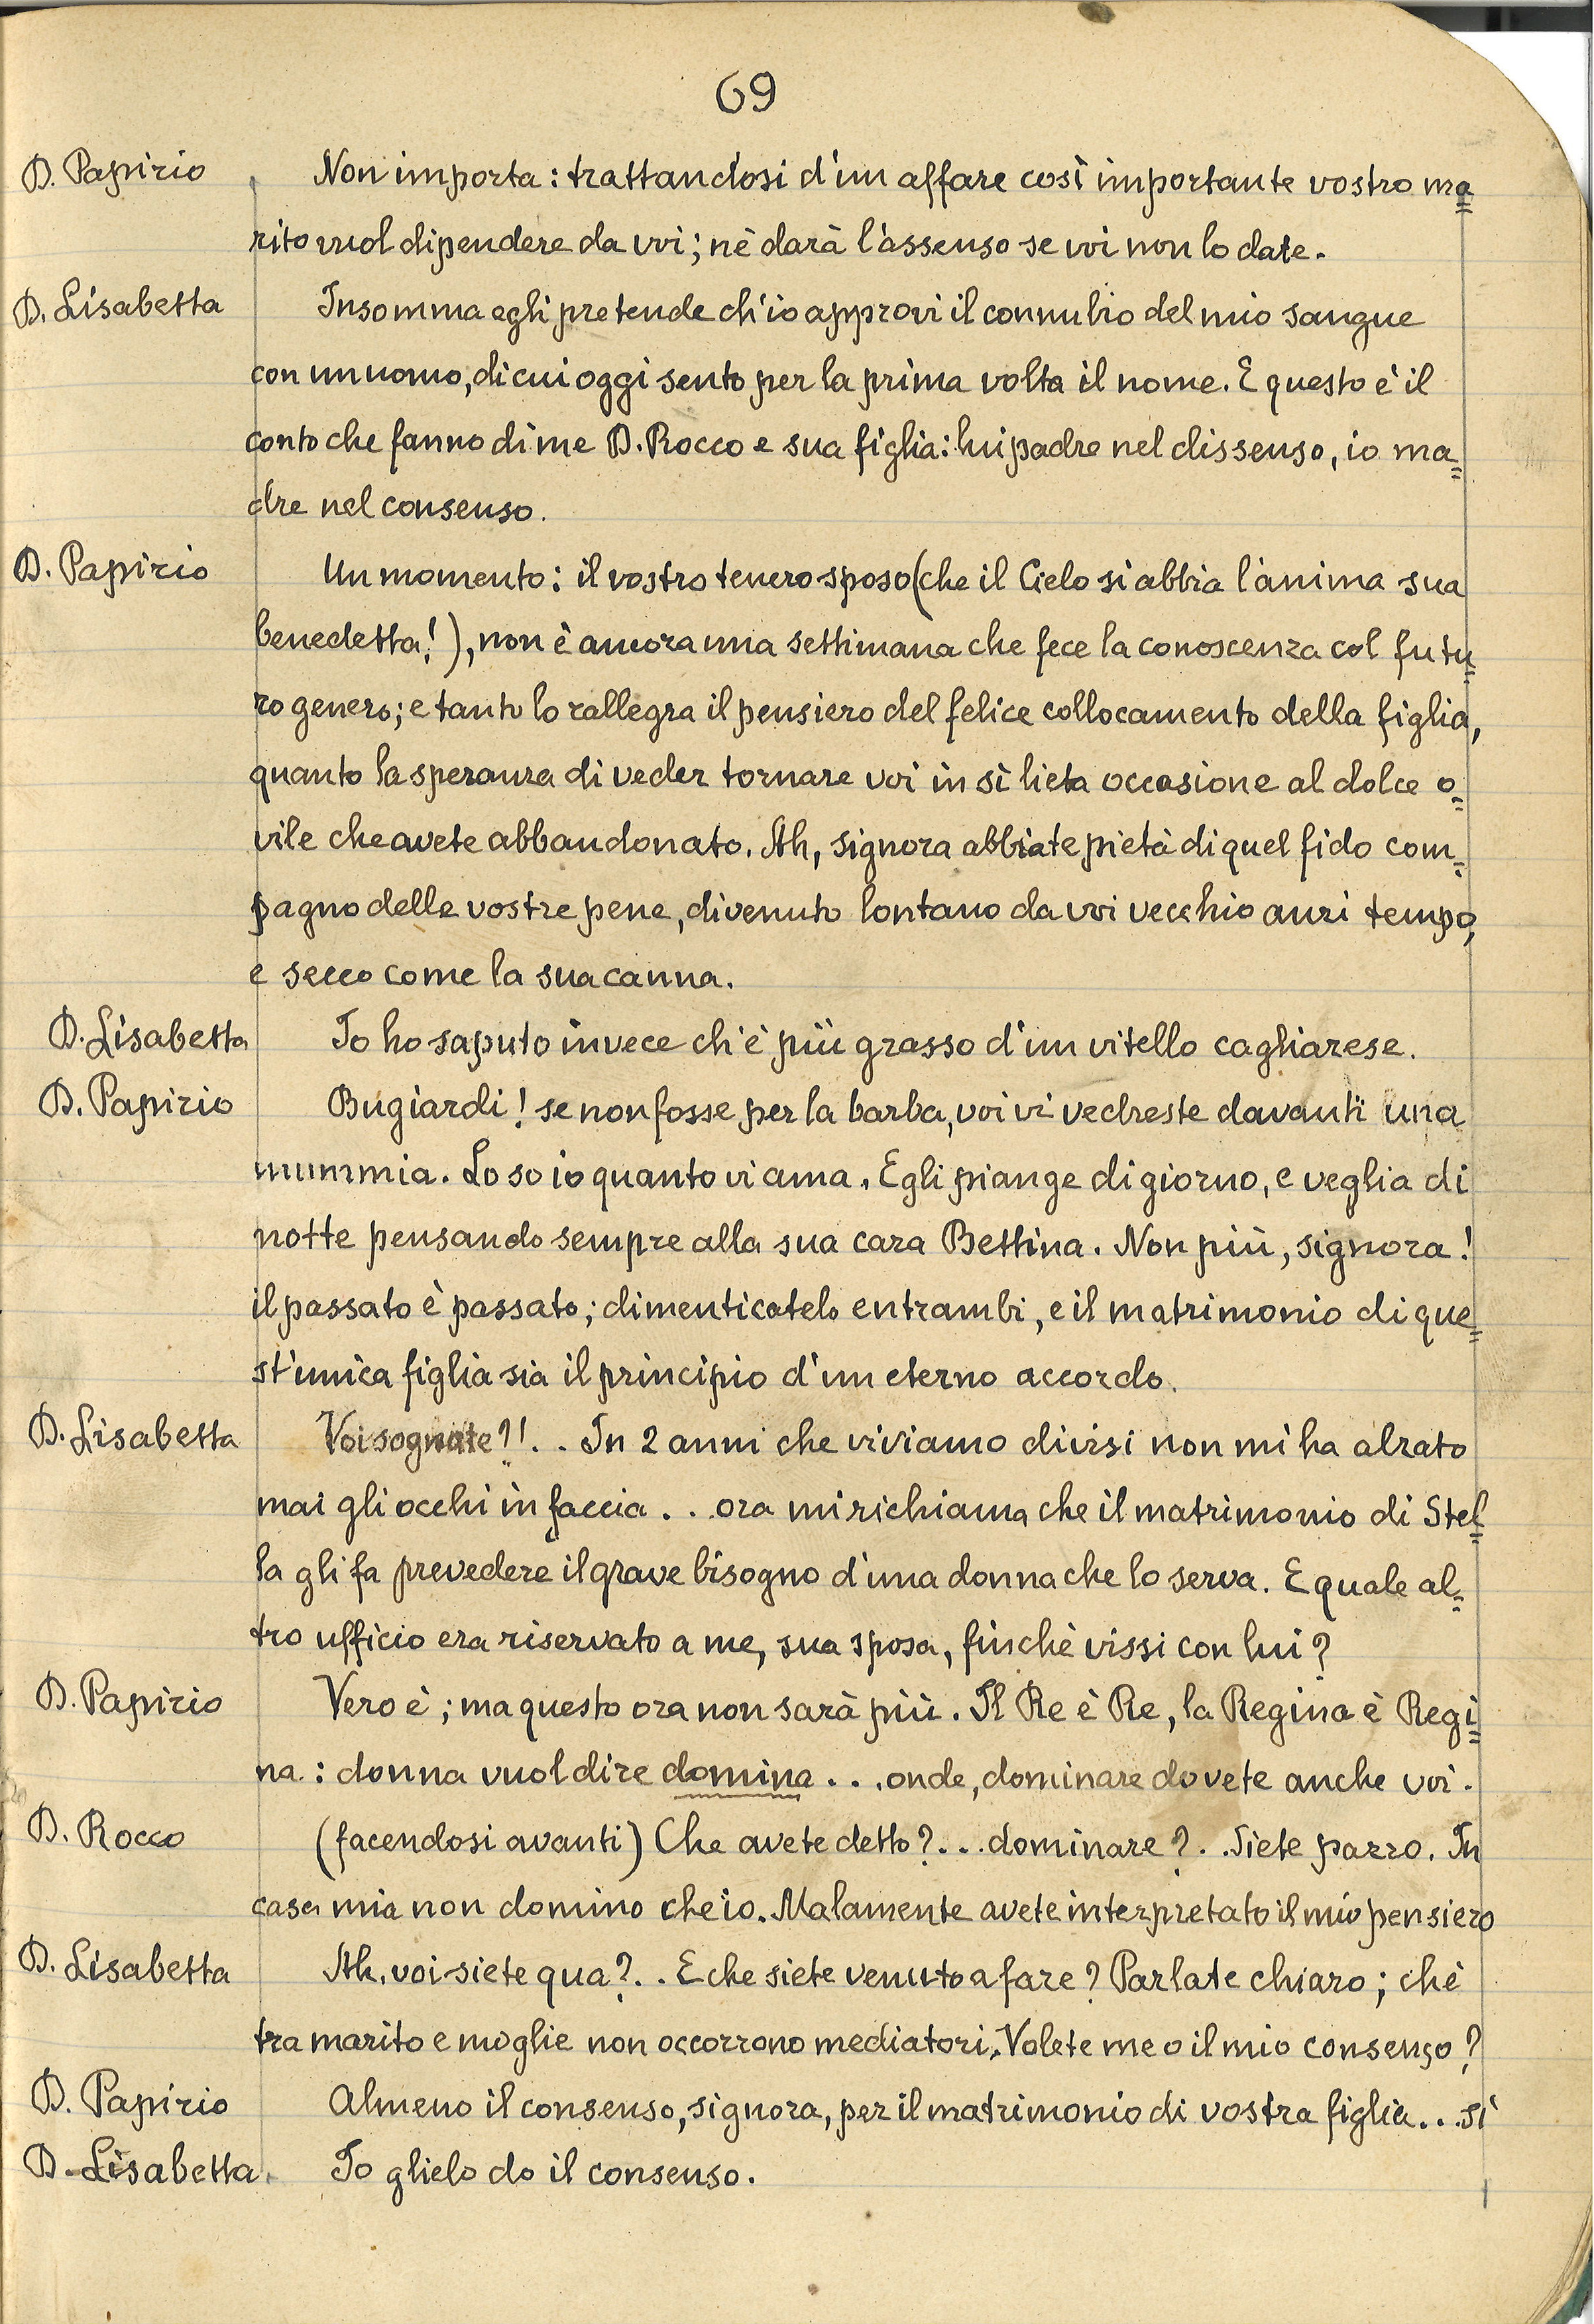 69
D. Papirio Non importa: trattandosi d'un affare così importante vostro ma=
rito vuol dipendere da voi; nè darà l'assenso se voi non lo date.
D. Lisabetta Insomma egli pretende ch'io approvi il connubio del mio sangue
con un uomo, di cui oggi sento per la prima volta il nome. E questo è il
conto che fanno di me D. Rocco e sua figlia: lui padre nel dissenso, io ma=
dre nel consenso.
D. Papirio Un momento: il vostro tenero sposo (che il Cielo si abbia l'anima sua
benedetta!), non è ancora una settimana che fece la conoscenza col futu=
ro genero; e tanto lo rallegra il pensiero del felice collocamento della figlia,
quanto la speranza di veder tornare voi in sì lieta occasione al dolce o=
vile che avete abbandonato. Ah, signora abbiate pietà di quel fido com=
pagno delle vostre pene, divenuto lontano da voi vecchio anzi tempo,
e secco come la sua canna.
D. Lisabetta Io ho saputo invece ch'è più grasso d'un vitello cagliarese.
D. Papirio Bugiardi! se non fosse per la barba, voi vi vedreste davanti una
mummia. Lo so io quanto vi ama. Egli piange di giorno, e veglia di
notte pensando sempre alla sua cara Bettina. Non più, signora!
il passato è passato; dimenticatelo entrambi, e il matrimonio di que=
st'unica figlia sia il principio d'un eterno accordo.
D. Lisabetta Voi sognate?!.. In 2 anni che viviamo divisi non mi ha alzato
mai gli occhi in faccia... ora mi richiama che il matrimonio di Stel=
la gli fa prevedere il grave bisogno d'una donna che lo serva. E quale al=
tro ufficio era riservato a me, sua sposa, finchè vissi con lui?
D. Papirio Vero è; ma questo ora non sarà più. Il Re è Re, la Regina è Regi=
na: donna vuol dire domina... onde, dominare dovete anche voi.
D. Rocco (facendosi avanti) Che avete detto?... dominare?.. Siete pazzo. In
casa mia non domino che io. Malamente avete interpretato il mio pensiero
D. Lisabetta Ah, voi siete qua?.. E che siete venuto a fare? Parlate chiaro; chè
tra marito e moglie non occorrono mediatori. Volete me o il mio consenso?
D. Papirio Almeno il consenso, signora, per il matrimonio di vostra figlia... sì
D. Lisabetta. Io glielo do il consenso.